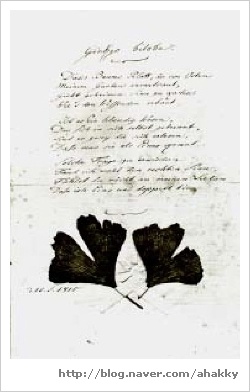 Ginkgo biloba.
Dieses Baums Blatt, der von Osten
Meinem Garten anvertraut,
Giebt geheimen Sinn zu kosten
Wie's den Wissenden erbaut.
Ist es Ein lebendig Wesen,
Das sich in sich selbst getrennt,
Sind es zwey die sich erlesen,
Dass man sie als Eines kennt.
Solche Frage zu erwiedern
Fand ich wohl den rechten Sinn;
Fühlst du nicht an meinen Liedern
Dass ich Eins und doppelt bin.
1815
http://blog.naver.com/ahakky